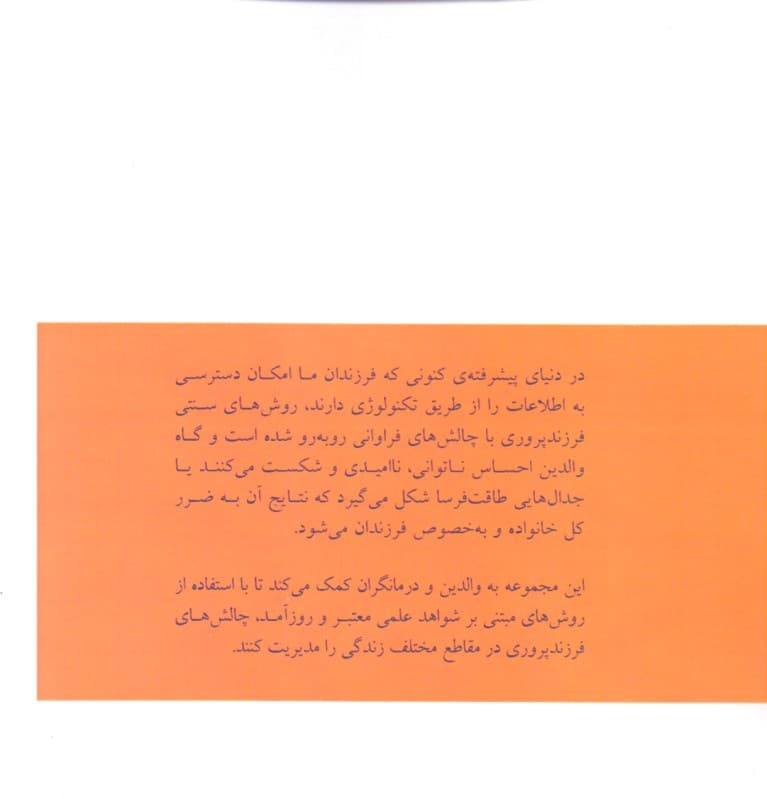 در دنیای پیشرفته‌ی کنونی که فرزندان ما امکان دسترسی
به اطلاعات را از طریق تکنولوژی دارند، روش‌های سنتی
فرزندپروری با چالش‌های فراوانی روبه‌رو شده است و گاه
والدین احساس ناتوانی، ناامیدی و شکست می‌کنند یا
جدال‌هایی طاقت‌فرسا شکل می‌گیرد که نتایج آن به ضرر
کل خانواده و به‌خصوص فرزندان می‌شود.
این مجموعه به والدین و درمانگران کمک می‌کند تا با استفاده از
روش‌های مبتنی بر شواهد علمی معتبر و روزآمد، چالش‌های
فرزندپروری در مقاطع مختلف زندگی را مدیریت کنند.